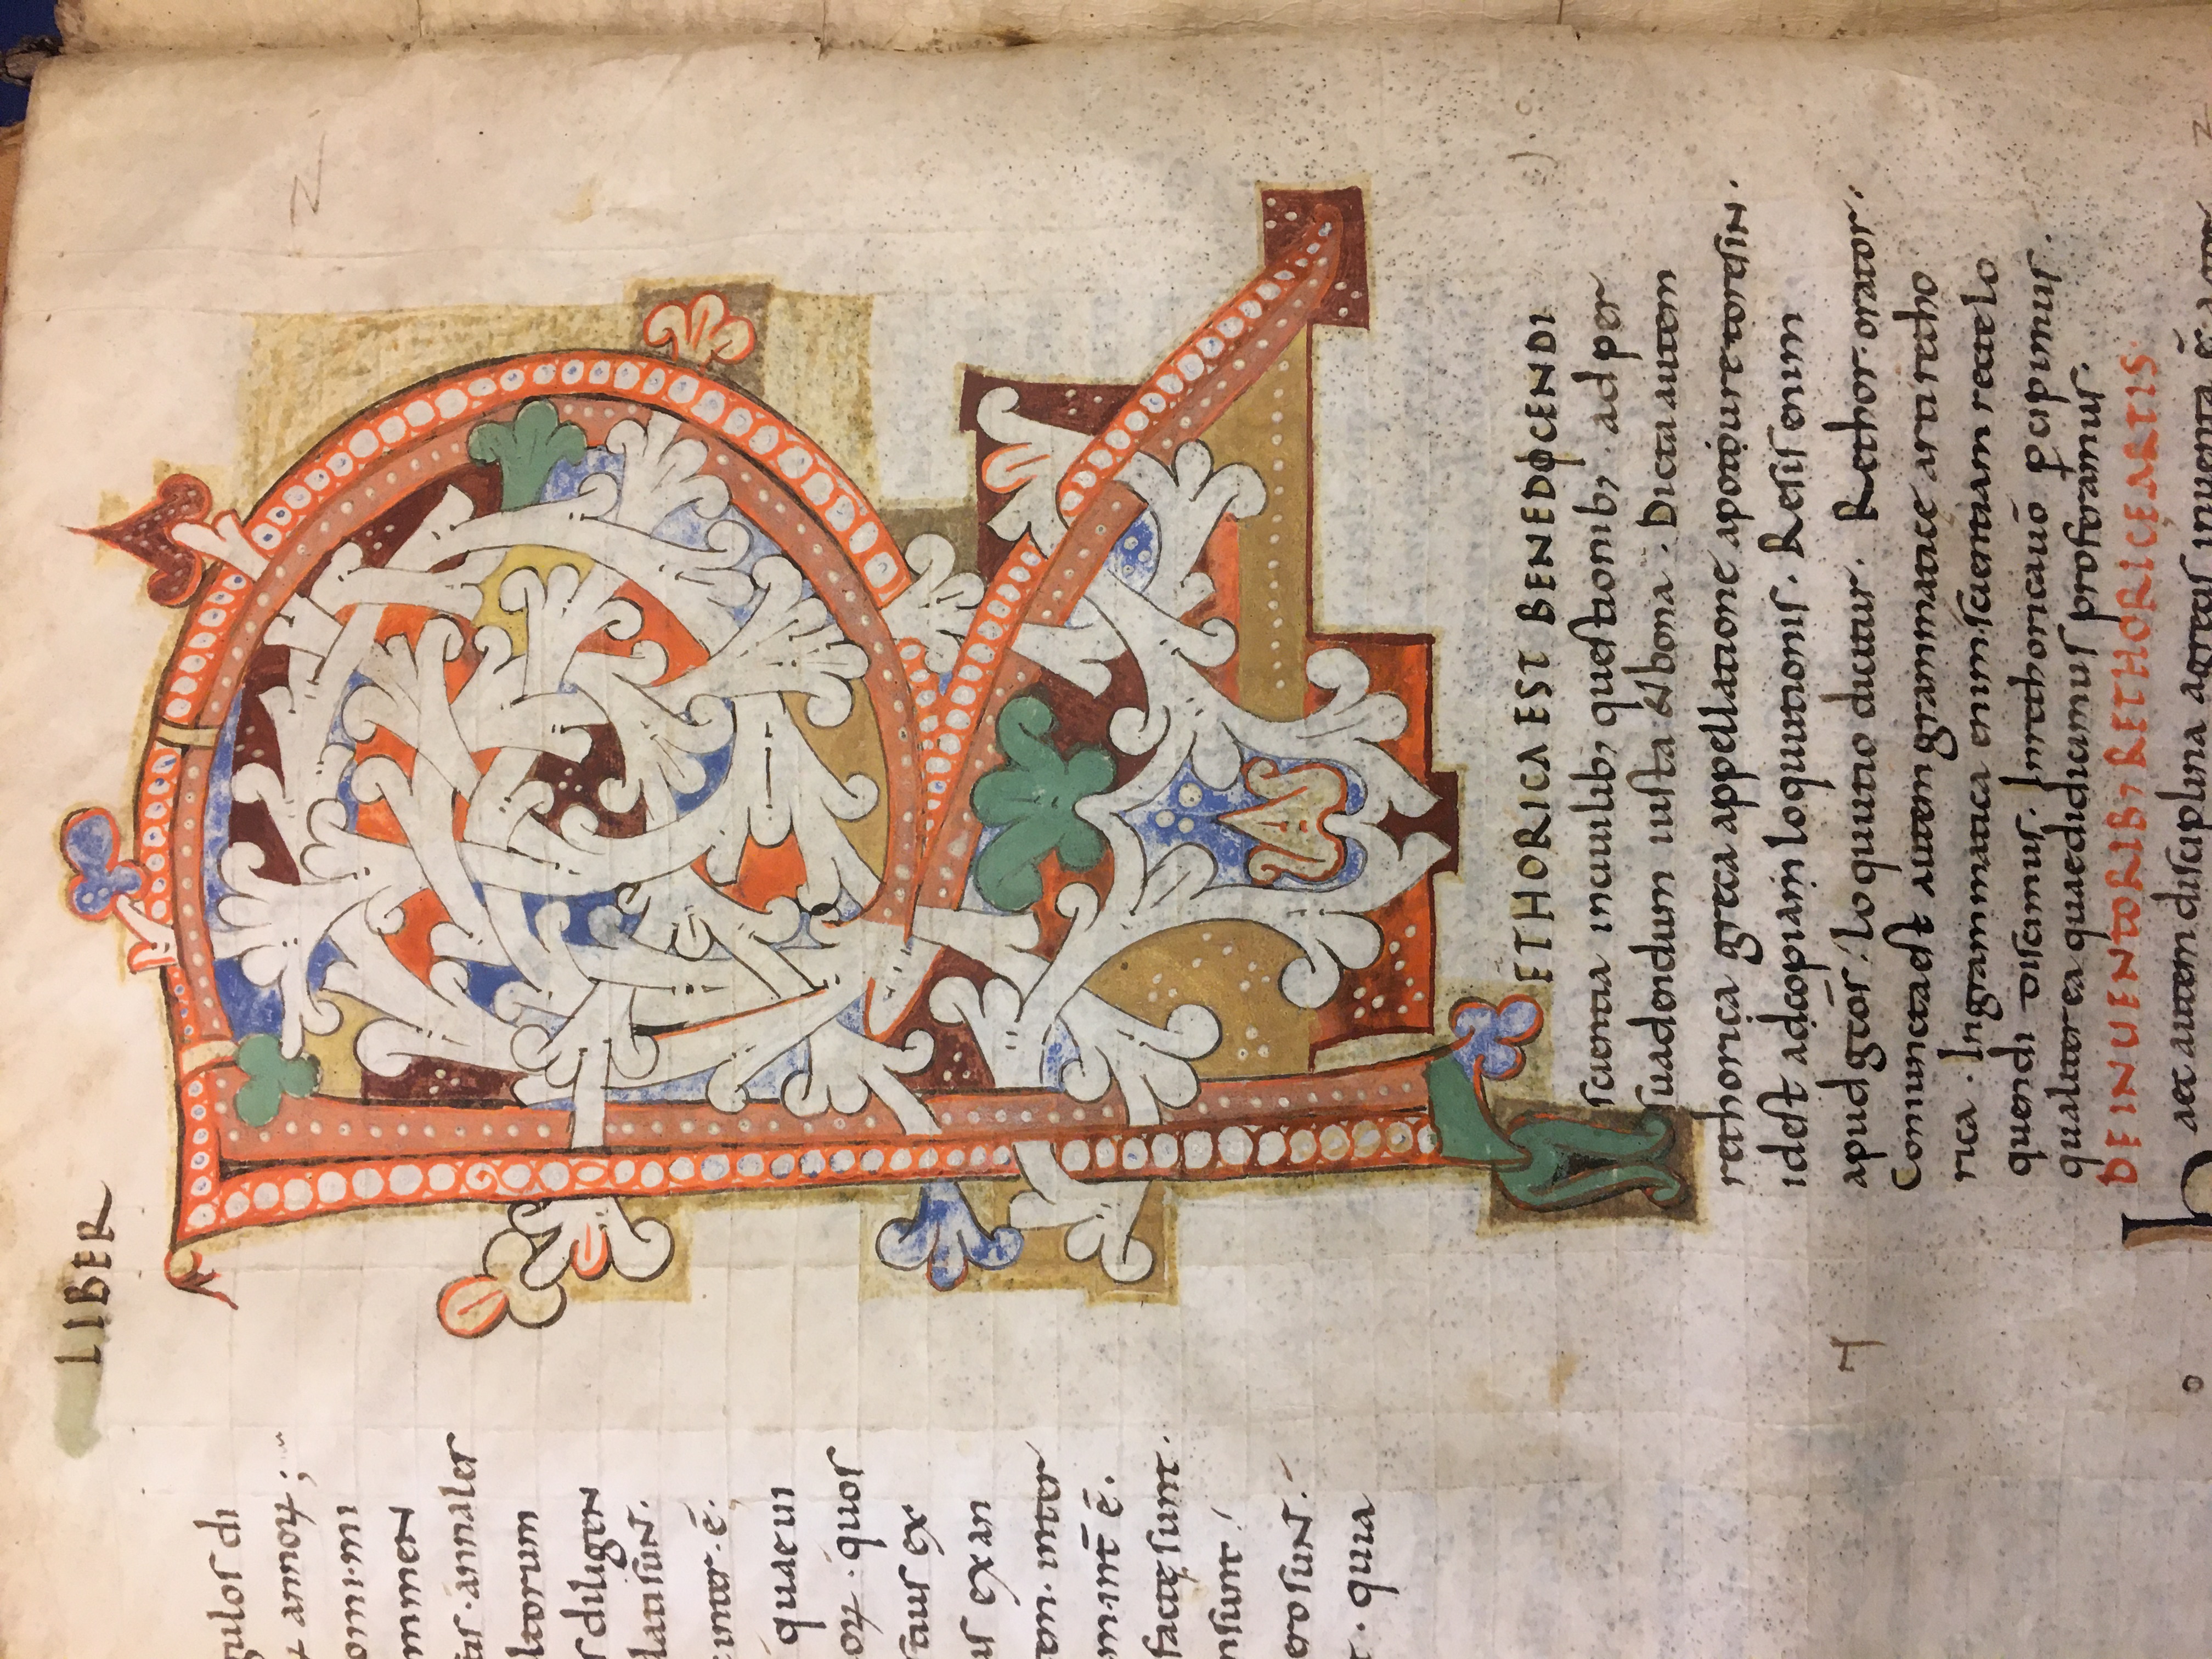 LIBER
gulos di
annoꝝ;
omi.mi
mmen
tas.annales
ltorum
s diligen
lati sunt.
inter.ē.
quae ui
oꝝ. quos
ex
us exan
tem. inter
m. int̄ ē.
factę sunt.
nsunt.
ero sunt.
t. quia
RETHORICA EST BENEDICENDI
scientia inciuilib; questionib;. ad per
suadendum iusta & bona. Dicta autem
rethorica greca appellatione apotoiuretoresin.
idest adcopiam loquutionis. Resis enim
apud grecos. loquutio dicitur. Rethor. orator.
Coniuncta est autem grammatice arti retho
rica. In grammatica enim scientiam recte lo
quendi discimus. In rethorica uō pcipimus.
qualiter ea quae didicimus proferamus.
DE INUENTORIB; RETHORICE ARTIS.
haec autem disciplina a grecis inuenta ē